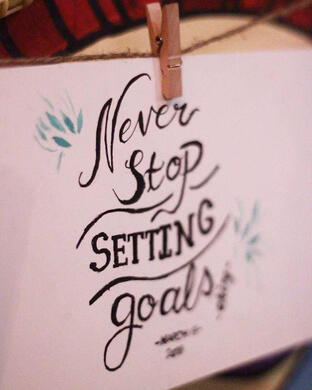 Never
Stop
SETTING
goals